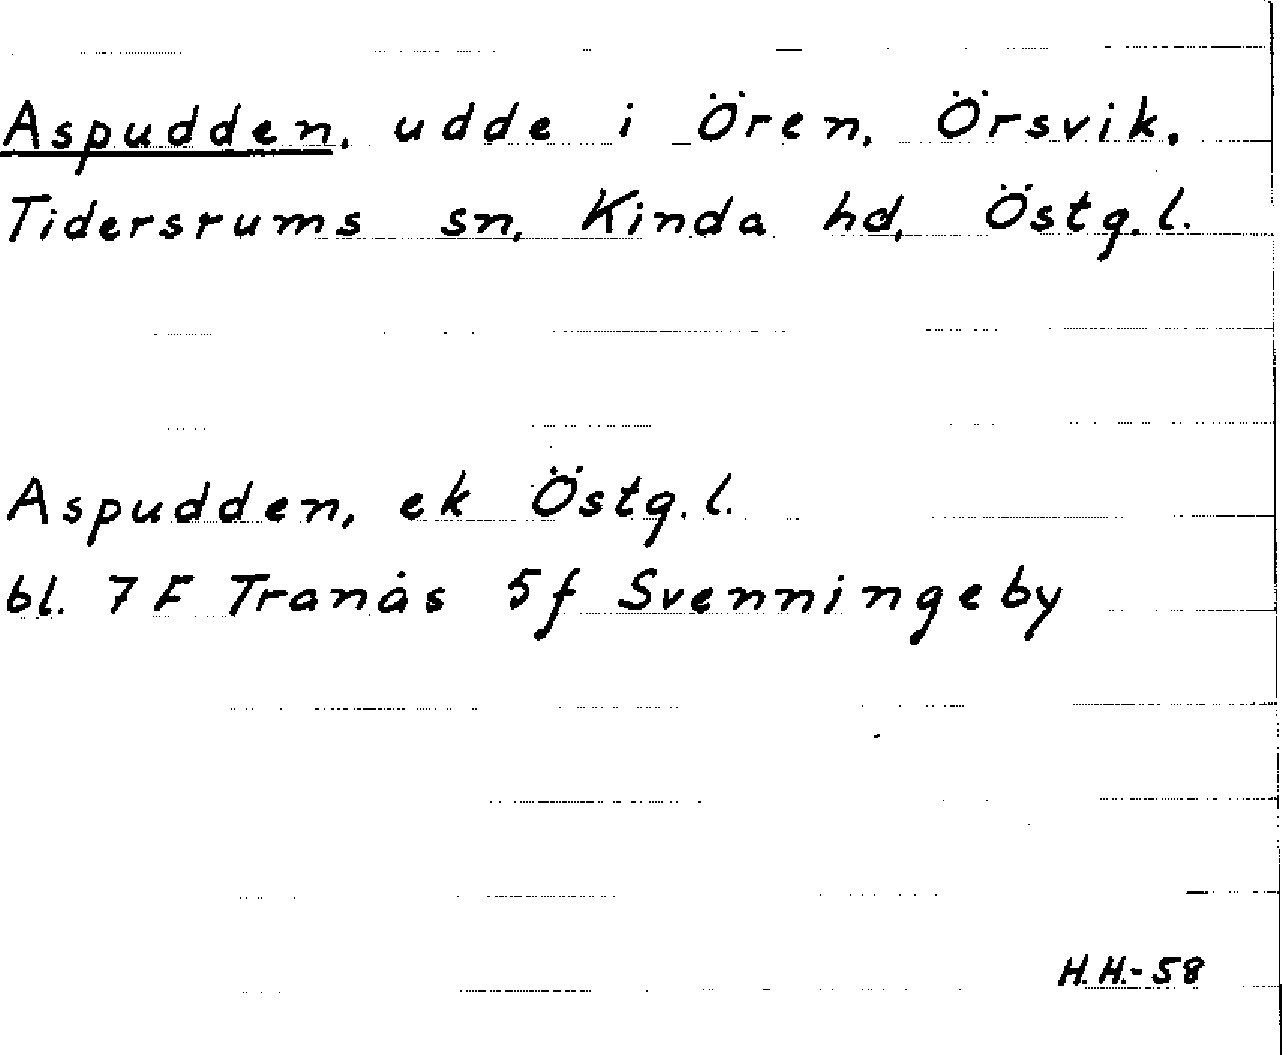 Aspudden, udde i Ören, Örsvik,
Tidersrums sn, Kinda hd, Östg.l.
Aspudden, ek Östg.l.
bl. 7F Tranås 5f Svenningeby
H.H.-58